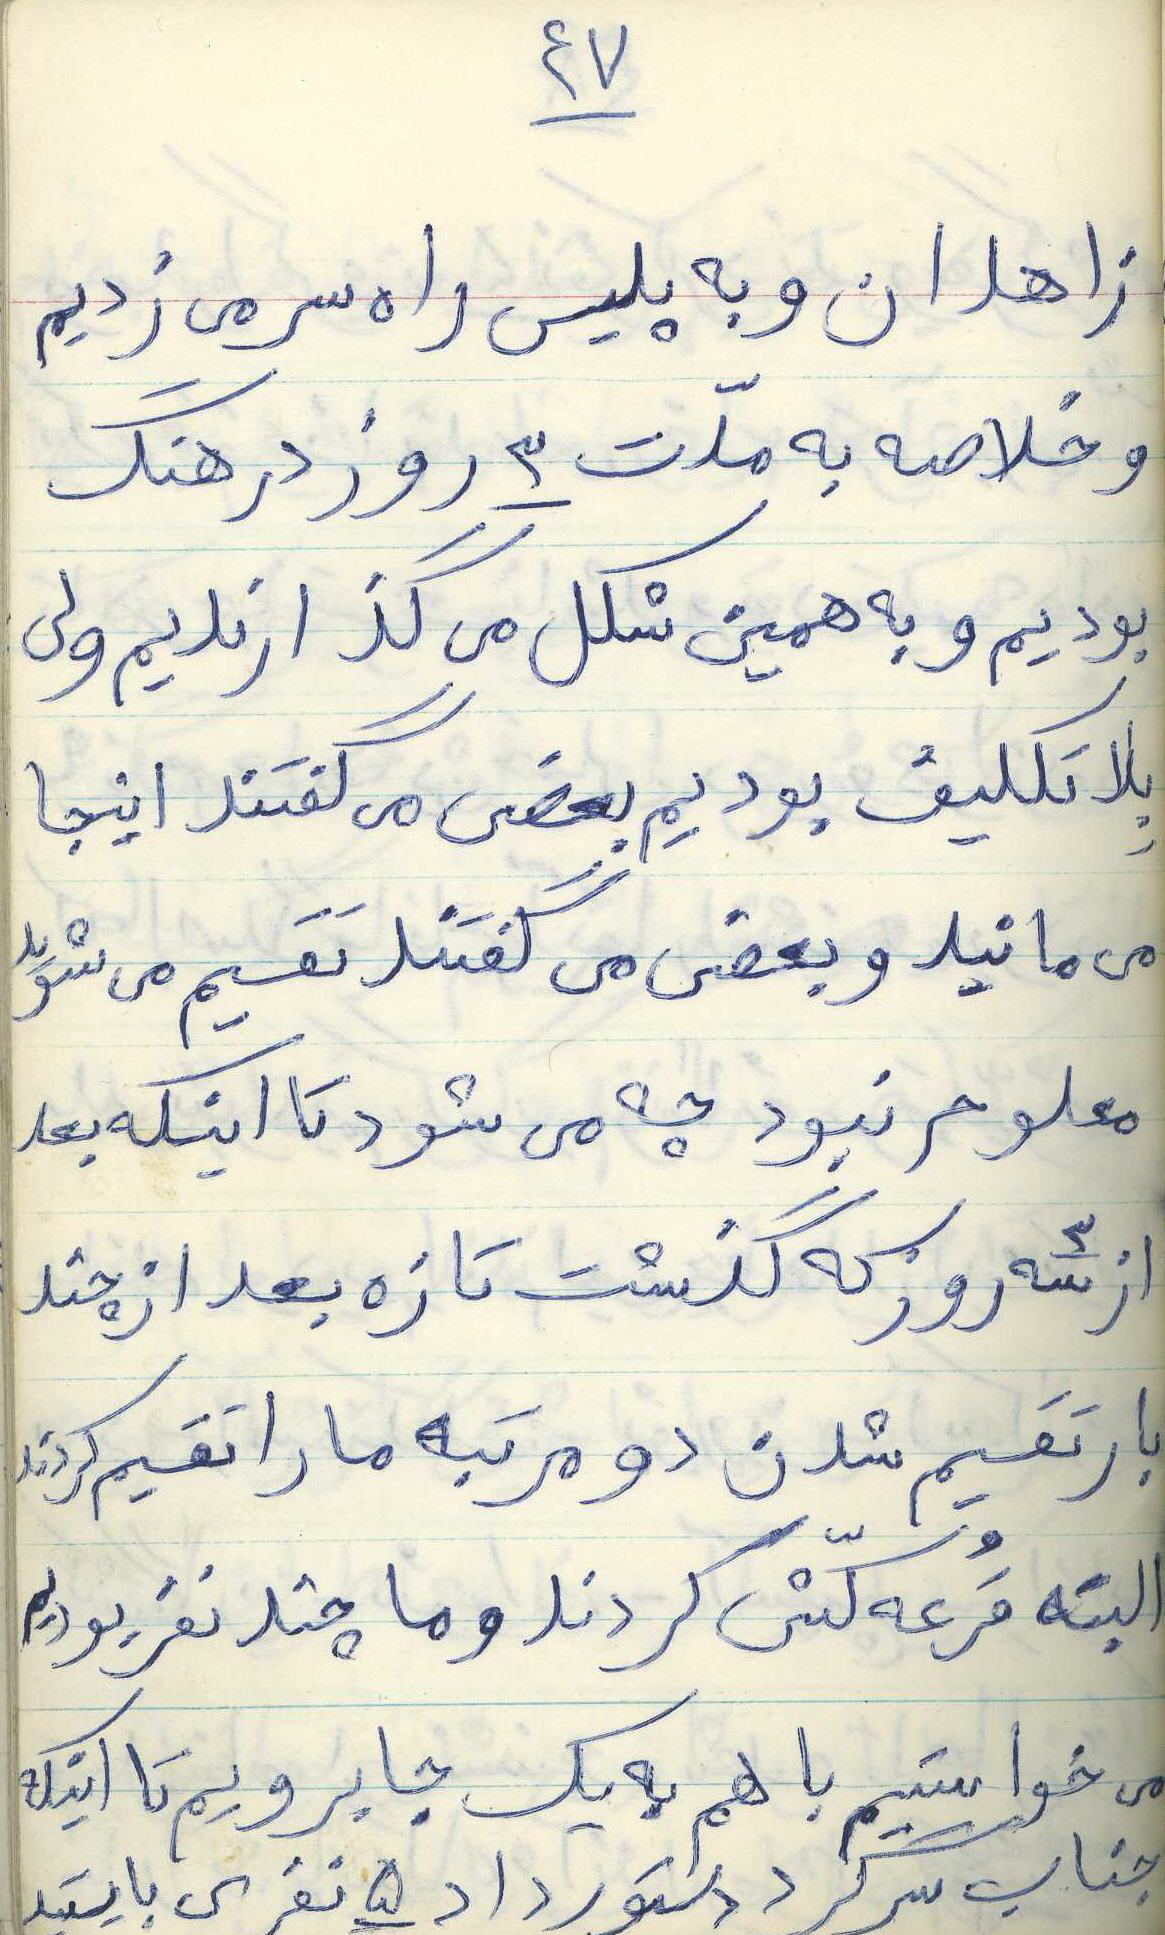 ۴۷
زاهدان و به پلیس راه سر می زدیم
و خلاصه به مدّت ۳ روز در هنگ
بودیم و به همین شکل می گذراندیم ولی
بلا تکلیف بودیم بعضی می گفتند اینجا
می مانید و بعضی می گفتند تقسیم می شوید
معلوم نبود چه می شود تا اینکه بعد
از سه ۳ روز که گذشت تازه بعد از چند
بار تقسیم شدن دو مرتبه ما را تقسیم کردند
البته قُرعه کشّی کردند و ما چند نفر بودیم
می خواستیم با هم به یک جا برویم تا اینکه
جناب سرگرد دستور داد ۵ نفری بایستید